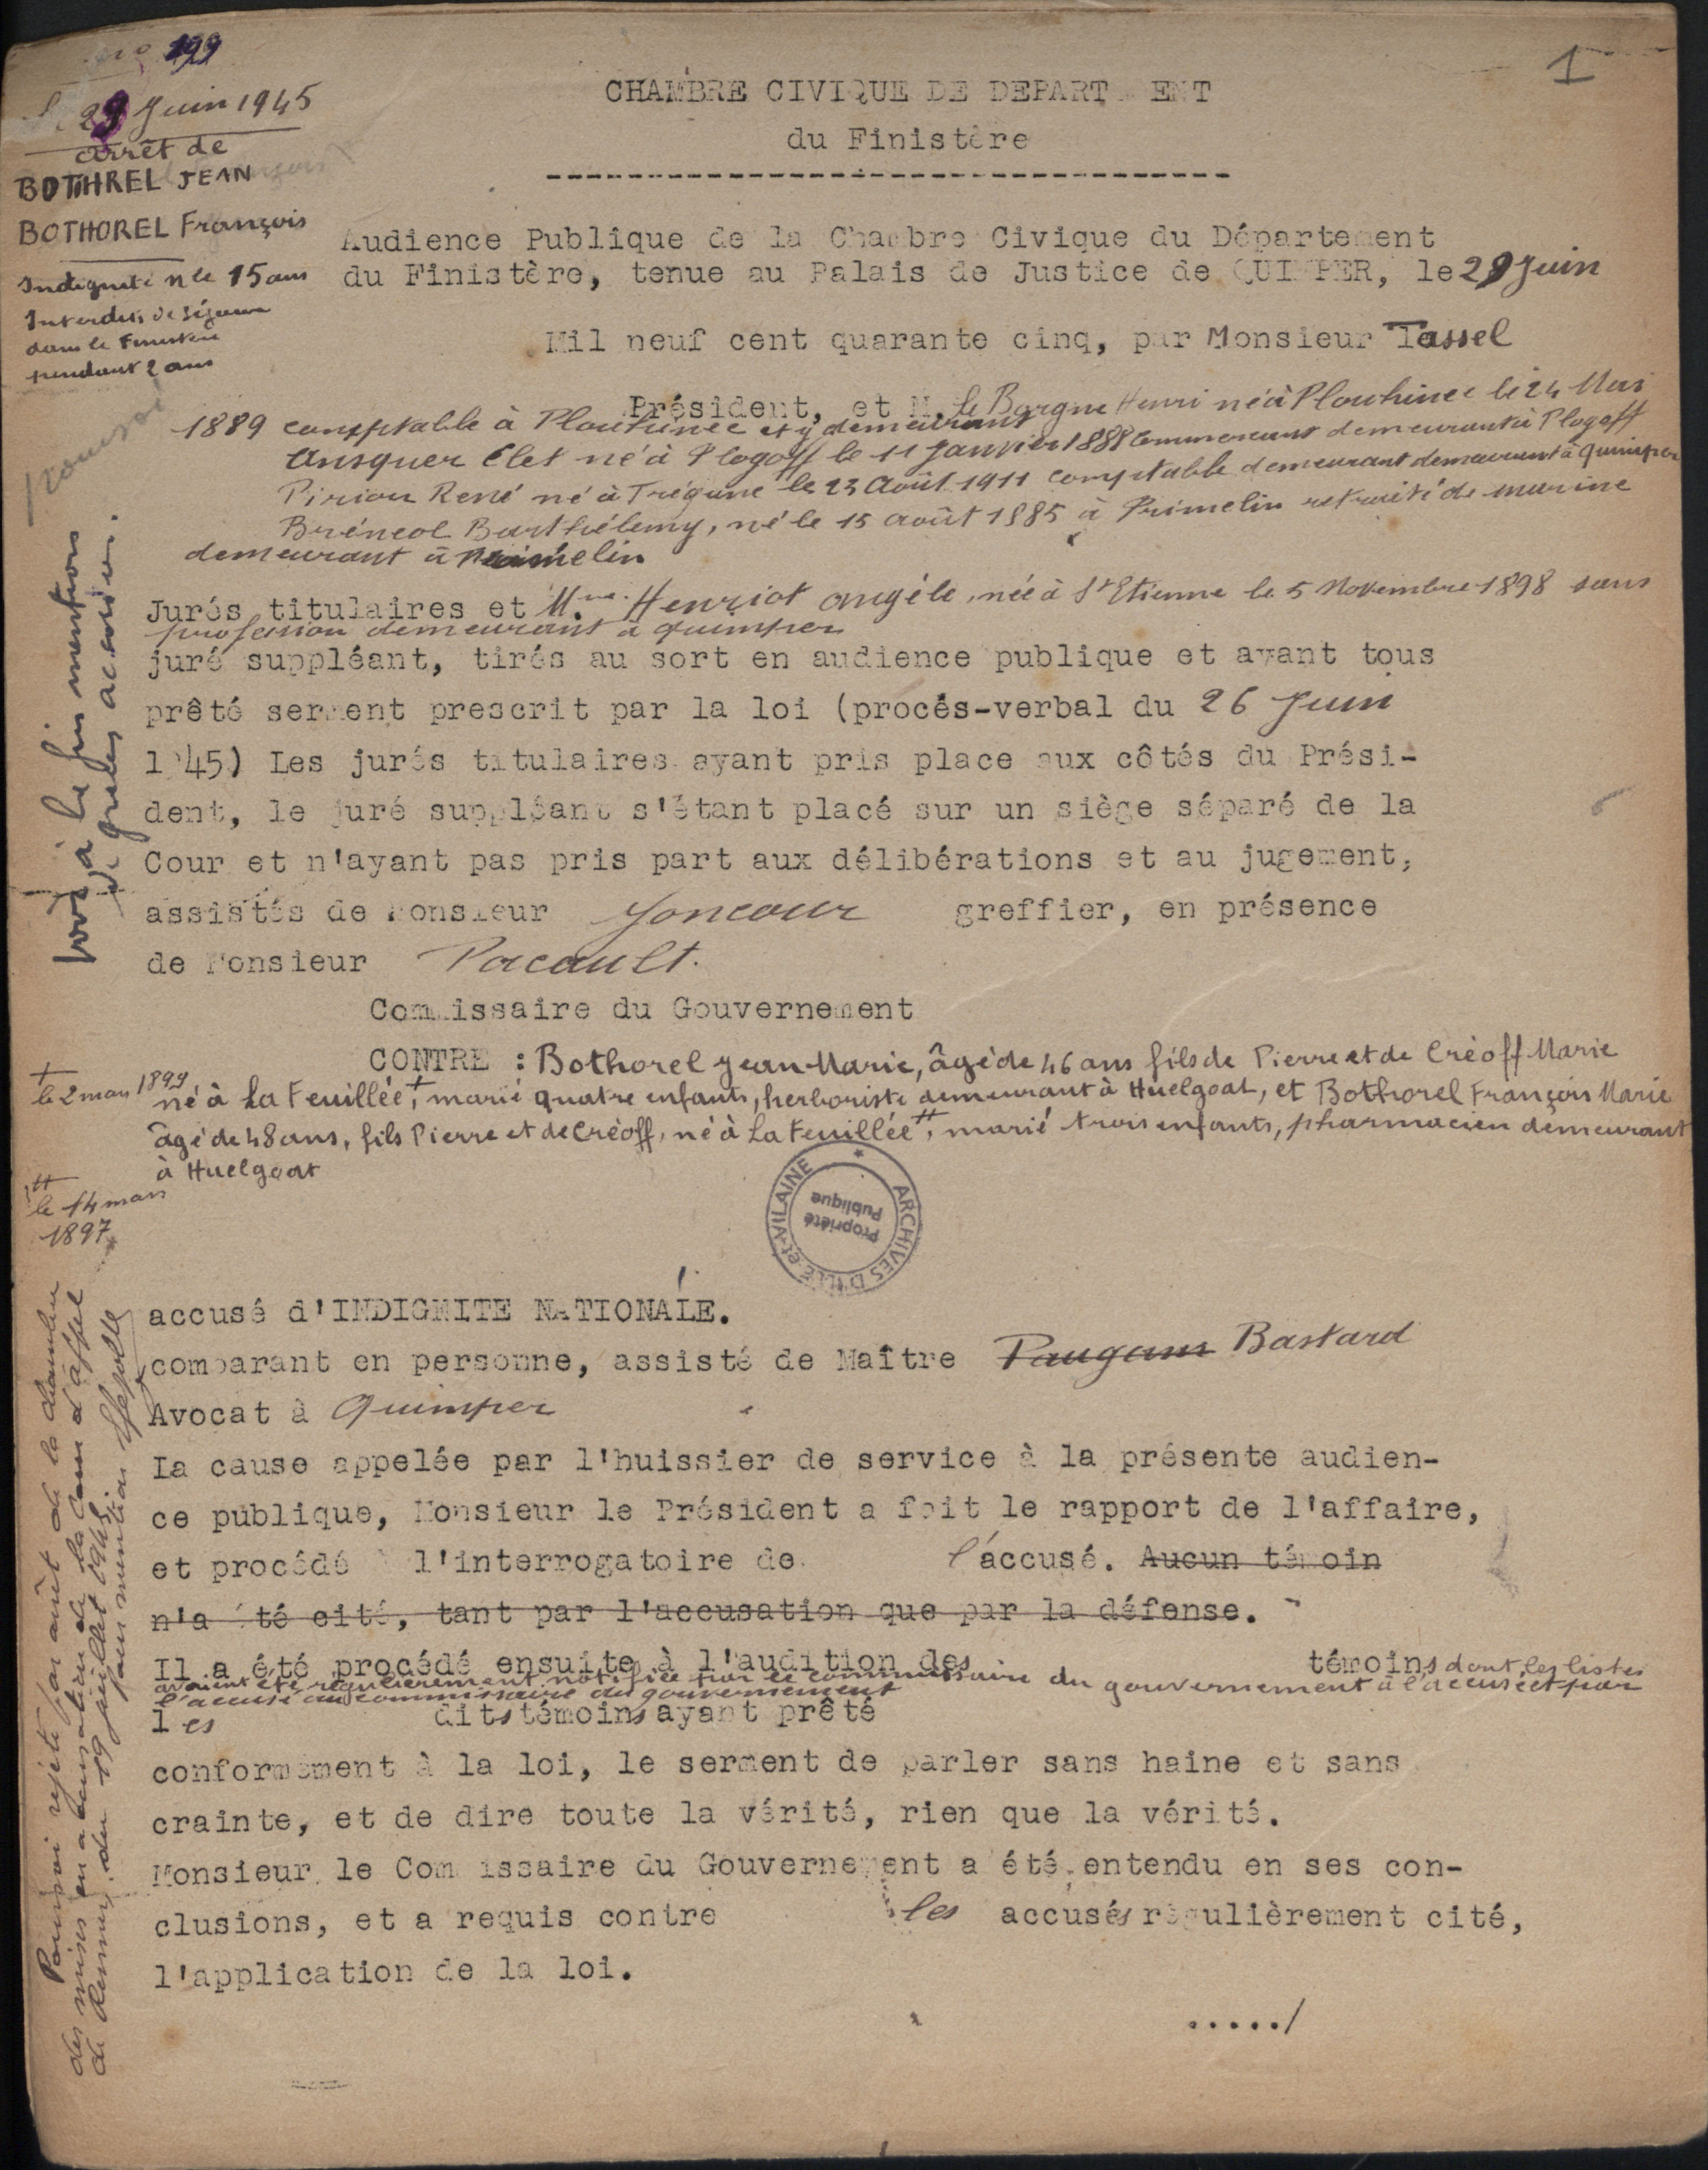 199
1
Le 29 Juin 1945
arrêt de
BOTHREL JEAN
BOTHOREL François
Indignité nle 15 ans
Interdits de séjour
dans le Finistère
pendant 2 ans
CHAMBRE CIVIQUE DE DEPART ENT
du Finistère
Audience Publique de la Chambre Civique du Département
du Finistère, tenue au Palais de Justice de QUIMPER, le 29 Juin
Mil neuf cent quarante cinq, par Monsieur Tassel
Président, et M. Le Borgne Henri né à Plouhinec le 24 Mai
1889 comptable à Plouhinec et y demeurant
Ansquer Clet né à Plogoff le 11 Janvier 1888 Commercant demeurant à Plogoff
Piriou René né à Trégunc le 23 Août 1911 comptable demeurant demeurant à Quimper
Brénéol Barthélemy, né le 15 août 1885 à Primelin retraité de marine
demeurant à Primelin
Jurés titulaires et Mme. Henriot angéle, née à St Etienne le 5 Novembre 1898 sans
profession demeurant à Quimper
juré suppléant, tirés au sort en audience publique et ayant tous
prêté serment prescrit par la loi (procés-verbal du 26 Juin
1945) Les jurés titulaires ayant pris place aux côtés du Prési-
dent, le juré suppléant s'étant placé sur un siège séparé de la
Cour et n'ayant pas pris part aux délibérations et au jugement,
assistés de Monsieur Joncour greffier, en présence
de Monsieur Pacault.
Commissaire du Gouvernement
CONTRE : Bothorel Jean-Marie, âgé de 46 ans fils de Pierre et de Créoff Marie
né à La Feuillée +, marié quatre enfants, herboriste demeurant à Huelgoat, et Bothorel François Marie
âgé de 48 ans, fils Pierre et de Créoff, né à La Feuillée ++, marié trois enfants, pharmacien demeurant
à Huelgoat
+
le 2 mars 1899
++
le 14 mars
1897
ARCHIVES D'ILLE-et-VILAINE
Propriété
Publique
accusé d'INDIGNITE NATIONALE.
comparant en personne, assisté de Maître Paugam Bastard
Avocat à Quimper
La cause appelée par l'huissier de service à la présente audien-
ce publique, Monsieur le Président a fait le rapport de l'affaire,
et procédé à l'interrogatoire de l'accusé. Aucun témoin
n'a été cité, tant par l'accusation que par la défense.
Il a été procédé ensuite à l'audition des témoins dont les listes
avaient été régulièrement notifiée par le commissaire du gouvernement à l'accusé et par
l'accusé au commissaire du gouvernement
les dits témoins ayant prêté
conformément à la loi, le serment de parler sans haine et sans
crainte, et de dire toute la vérité, rien que la vérité.
Monsieur le Com issaire du Gouvernement a été entendu en ses con-
clusions, et a requis contre les accusés régulièrement cité,
l'application de la loi.
...../
voir à la fin mentions
de grâces accordées.
Pourvoi rejeté par arrêt de la chambre
des mises en accusation de la Cour d'appel
de Rennes, du 19 juillet 1945
pour mention